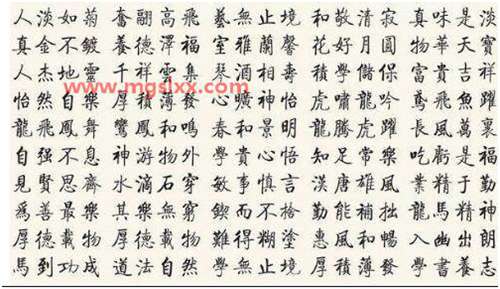 人淡如菊 奮翮高飛 藝無止境 和敬清寂 真味是淡
真金不鍍 養德澤福 室雅蘭馨 花好月圓 物華天寶
人杰地靈 千祥雲集 琴 相壽 學儲保 富貴吉祥
www.mgslxx.com
怡然自樂 厚積薄發 心曠神怡 虎嘯龍吟 鳶飛魚躍
龍飛鳳舞 鸞鳳和鳴 春和景明 龍騰虎躍 長風萬裏
自强不息 神游物外 學貴心悟 知足常樂 吃虧是福
見賢思齊 水滴石穿 敏事慎言 漢唐雄風 業精于勤
爲善最樂 其樂無窮 鍥而不捨 勤能補拙 龍馬精神
厚德載物 厚德載物 難得糊塗 惠風和暢 入幽出朗
馬到功成 道法自然 學無止境 厚積薄發 學書養志